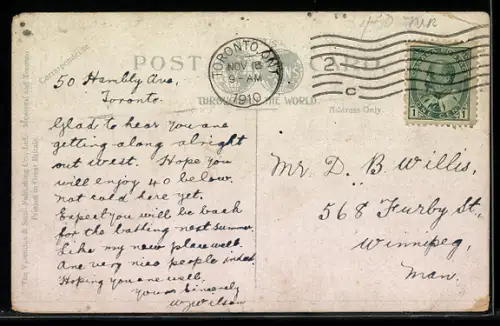 POST CARD
Correspondence
Address Only.
THROUGHOUT THE WORLD.
The Valentine & Sons Publishing Co., Ltd., Montreal and Toronto.
Printed in Great Britain.
TORONTO, ONT.
NOV 15
9-AM
1910
2
C
1 1
50 Hambly Ave,
Toronto.
Glad to hear you are
getting along alright
out West. Hope you
will enjoy 40 below.
not cold here yet.
Expect you will be back
for the bathing next summer.
Like my new place well.
Are very nice people indeed.
Hoping you are well.
Yours Sincerely
W J Wilson
Mr. D. B. Willis,
568 Furby St,
Winnipeg,
Man.